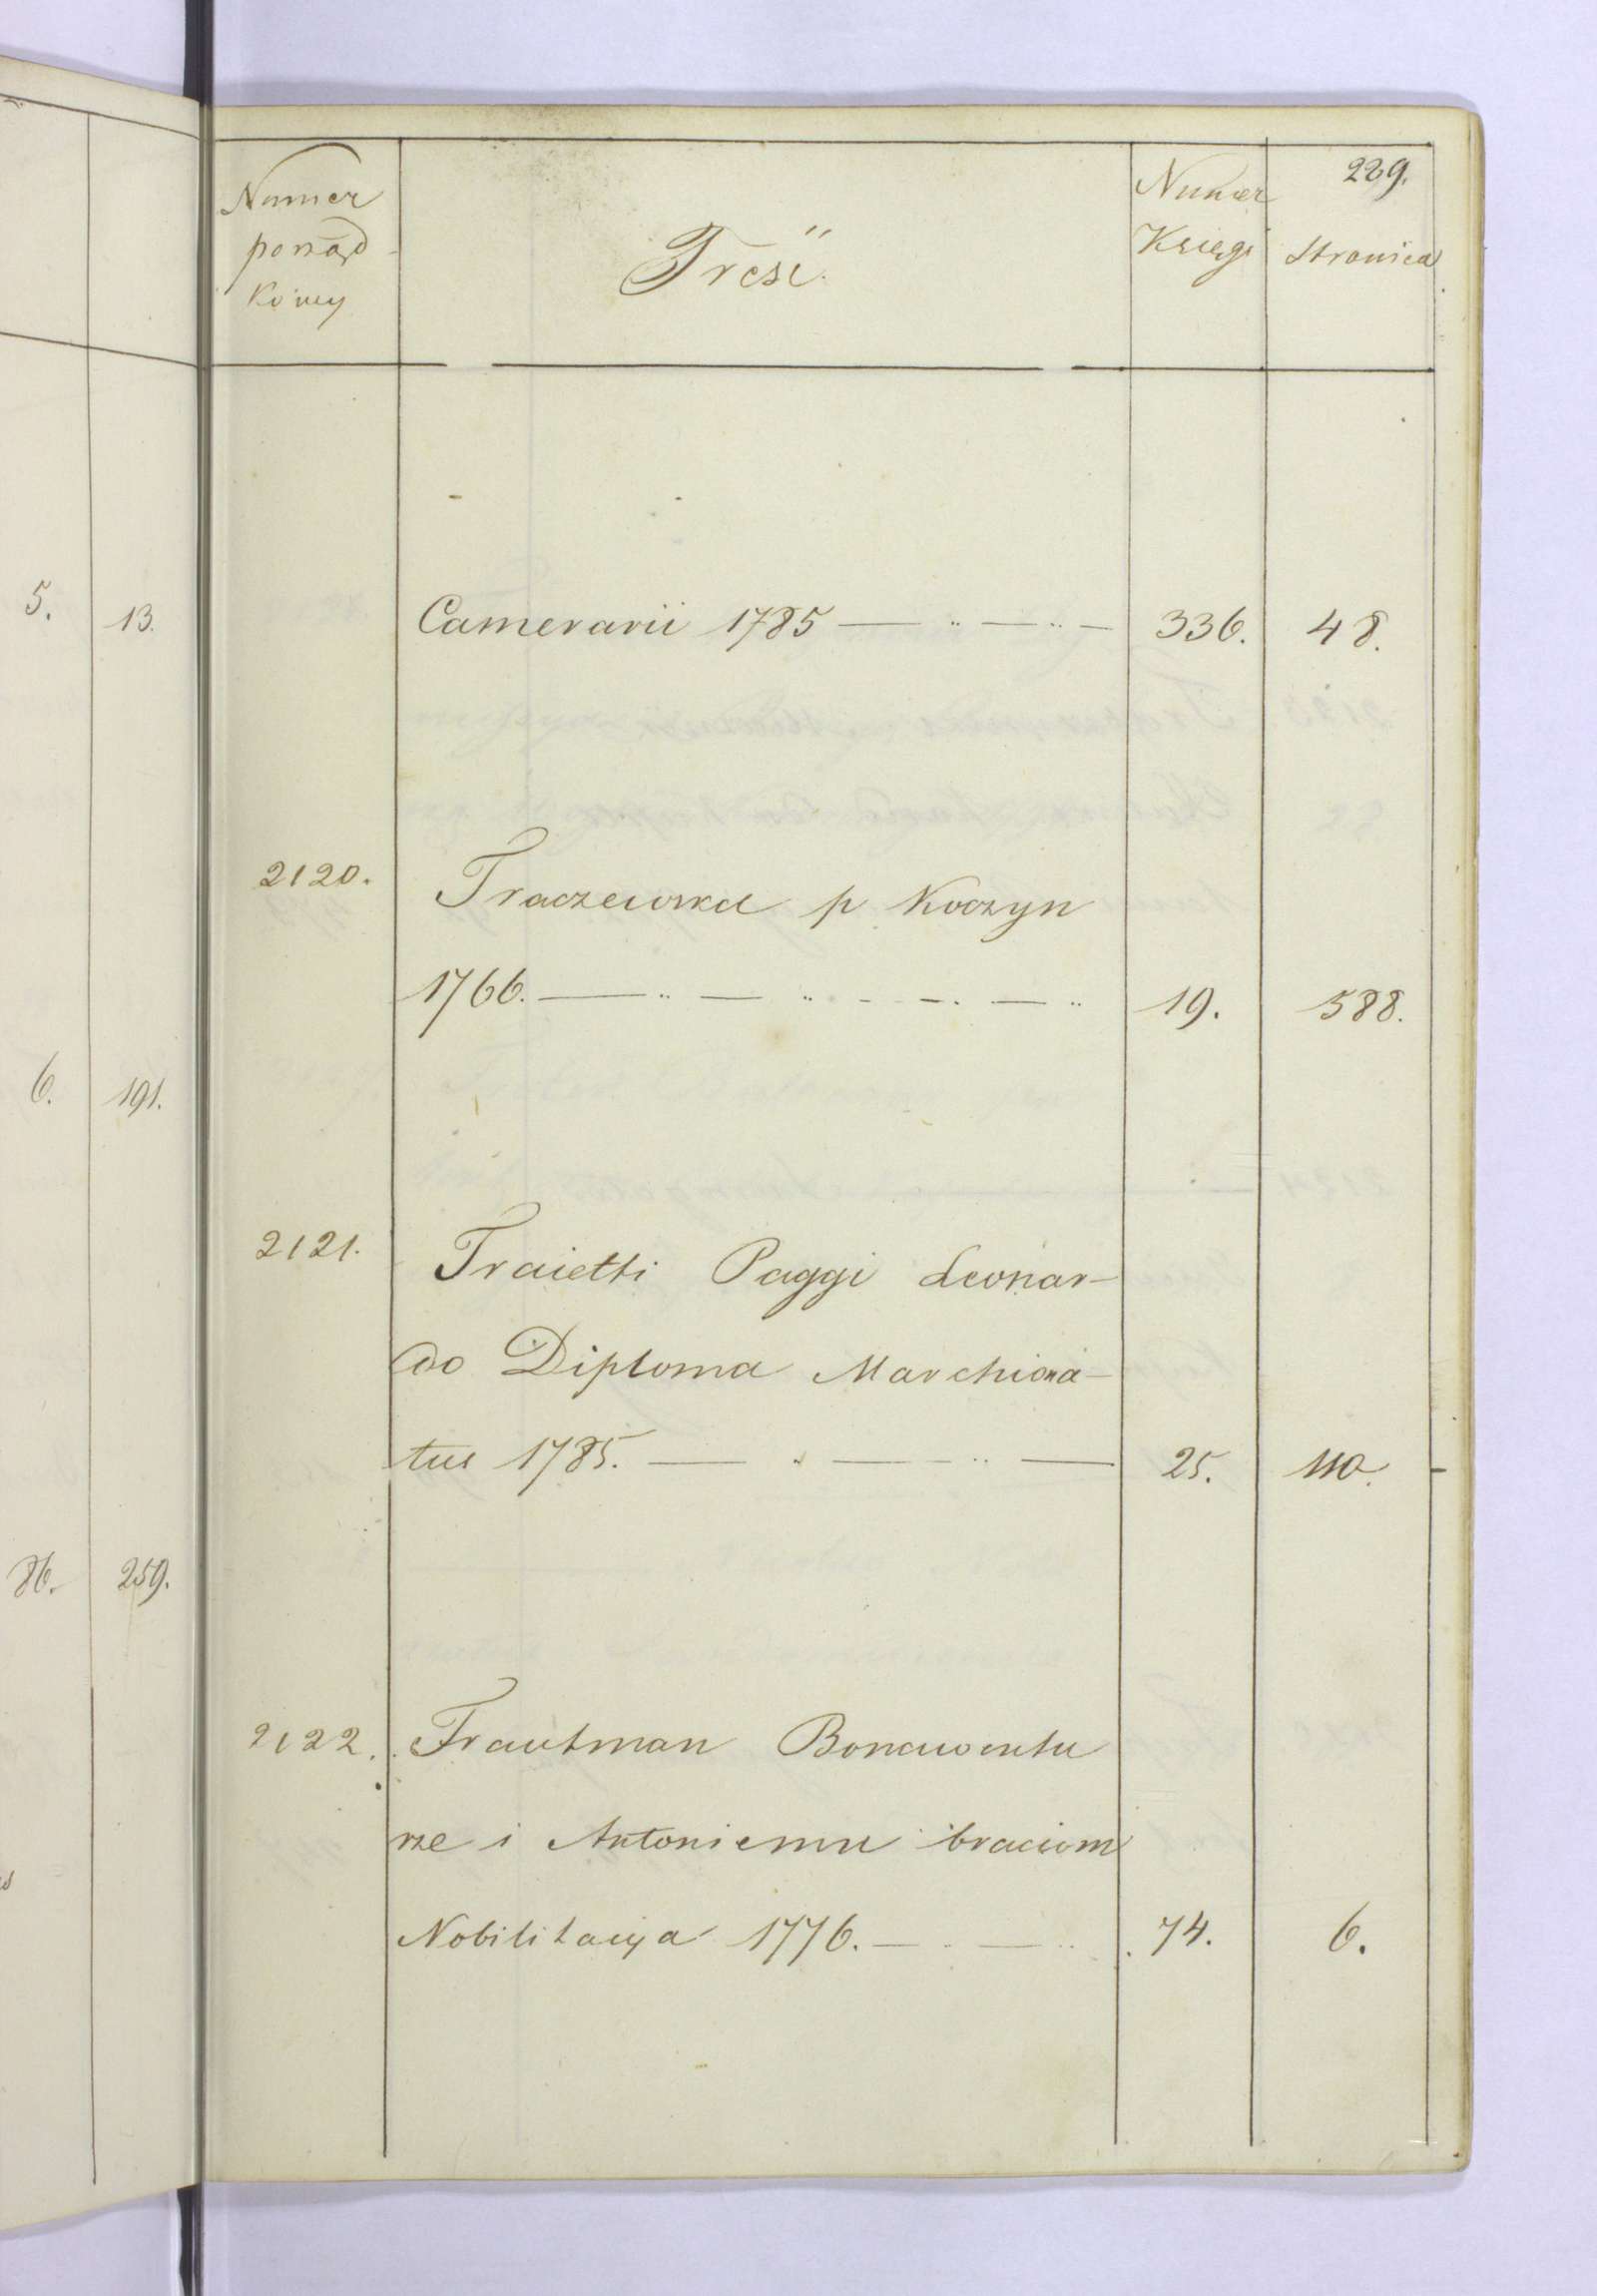 5. 13.
6. 191.
86. 259.
229.
Numer
porząd-
kowy
Treść.
Numer
Księgi
Stronica
Camerarii 1785 — 336. 48.
2120. Traczewska p Koczyn
1766. — 19. 588.
2121. Traietti Paggi Leonar-
do Diploma Marchiona-
tus 1785. — 25. 110.
2122. Trautman Bonawentu
rze i Antoniemu braciom
Nobilitacya 1776. — 74. 6.